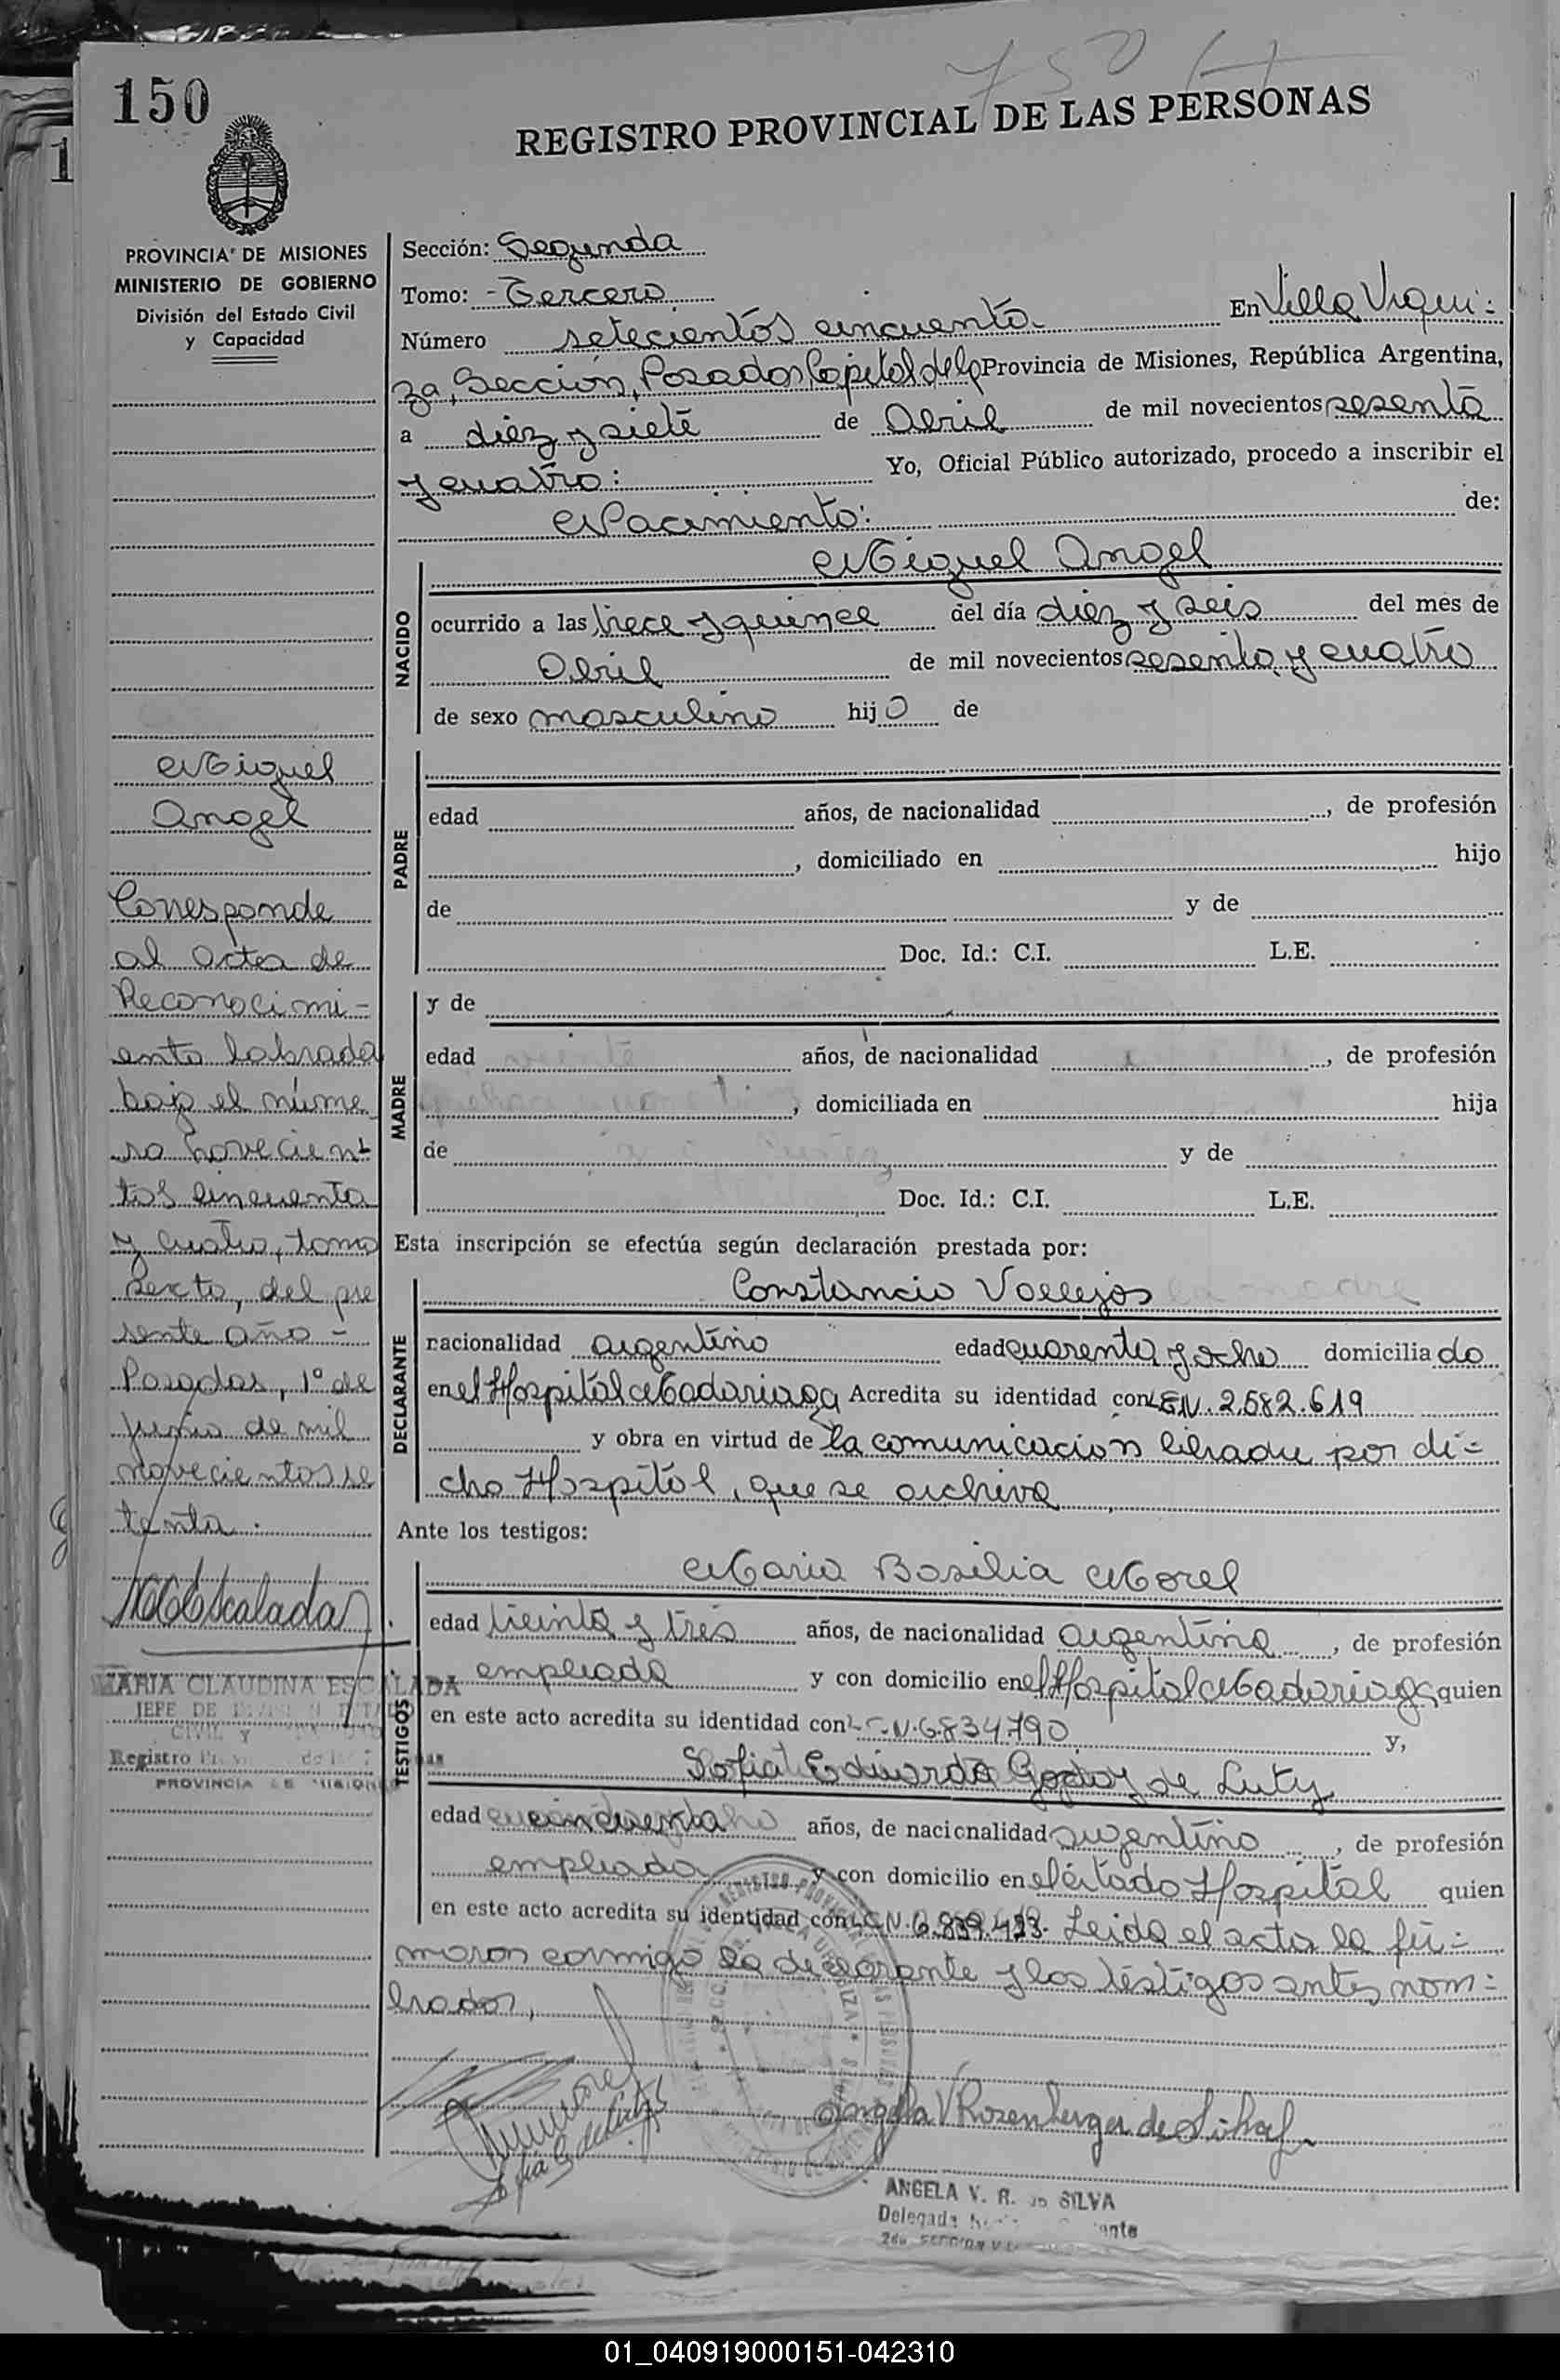 750
150
REGISTRO PROVINCIAL DE LAS PERSONAS
PROVINCIA DE MISIONES
MINISTERIO DE GOBIERNO
División del Estado Civil
y Capacidad
Miguel
Angel
Corresponde
al acta de
Reconocimi-
ento labrada
bajo el núme
ro novecien
tos cincuenta
y cuatro, tomo
sexto, del pre
sente año -
Posadas, 1º de
junio de mil
novecientos se
tenta.
Escalada
MARIA CLAUDINA ESCALADA
JEFE DE
CIVIL Y
Registro
PROVINCIA DE MISIONES
Sección: Segunda
Tomo: - Tercero
Número setecientos cincuenta- En Villa Urqui=
za, Sección, Posadas Capital de la Provincia de Misiones, República Argentina,
a diez y siete de Abril de mil novecientos sesenta
y cuatro: Yo, Oficial Público autorizado, procedo a inscribir el
Nacimiento: de:
NACIDO
Miguel Angel
ocurrido a las trece y quince del día diez y seis del mes de
Abril de mil novecientos sesenta y cuatro
de sexo masculino hijo de
PADRE
edad años, de nacionalidad , de profesión
, domiciliado en hijo
de y de
Doc. Id.: C.I. L.E.
MADRE
y de
edad años, de nacionalidad , de profesión
, domiciliada en hija
de y de
Doc. Id.: C.I. L.E.
Esta inscripción se efectúa según declaración prestada por:
DECLARANTE
Constancio Vallejos
nacionalidad argentino edad cuarenta y ocho domiciliado
en el Hospital Madariaga Acredita su identidad con L.E.N. 2.582.619
y obra en virtud de la comunicacion librada por di=
cho Hospital, que se archiva
Ante los testigos:
TESTIGOS
Maria Basilia Morel
edad treinta y tres años, de nacionalidad argentina , de profesión
empleada y con domicilio en el Hospital Madariaga quien
en este acto acredita su identidad con L.C.N. 6.834.790 y,
Sofia Eduarda Godoy de Luty
edad cincuenta años, de nacionalidad argentina , de profesión
empleada y con domicilio en el citado Hospital quien
en este acto acredita su identidad con L.C.N. 6.839.493. Leida el acta la fir=
maron conmigo la declarante y los testigos antes nom=
brados,
Angela V Rosenberger de Silva
ANGELA V. R. de SILVA
Delegada
2da SECCION
01_040919000151-042310